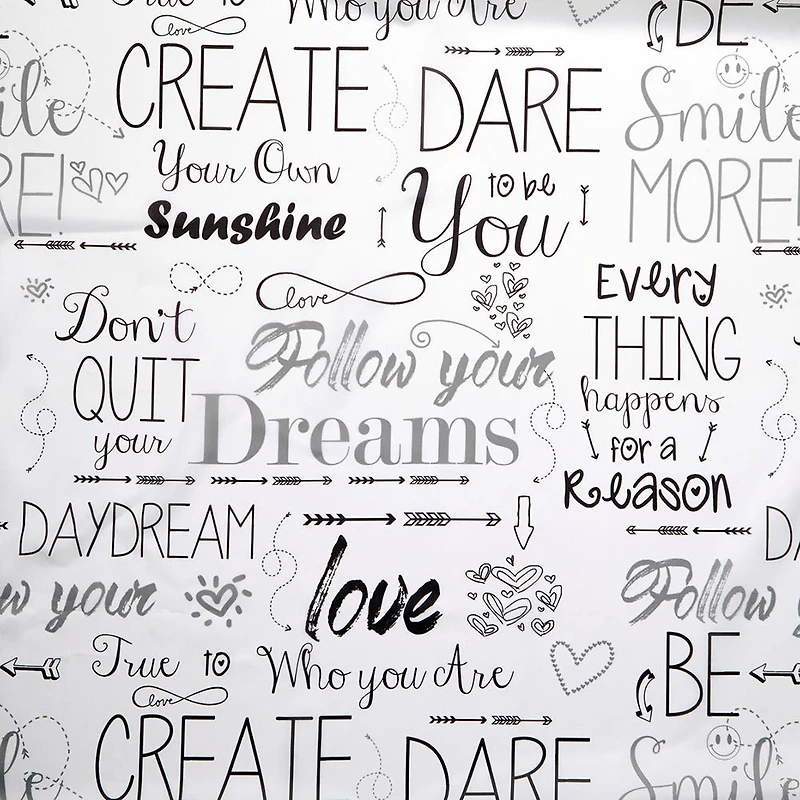 True to
Who you Are
BE
love
CREATE
Your Own
Sunshine
DARE
to be
You
Smile
MORE!
ile
RE!
love
Don't
QUIT
your
Follow your
Dreams
Every
THING
happens
for a
Reason
DAYDREAM
love
w your
Follow
True to
Who you Are
BE
love
CREATE
DARE
Smile